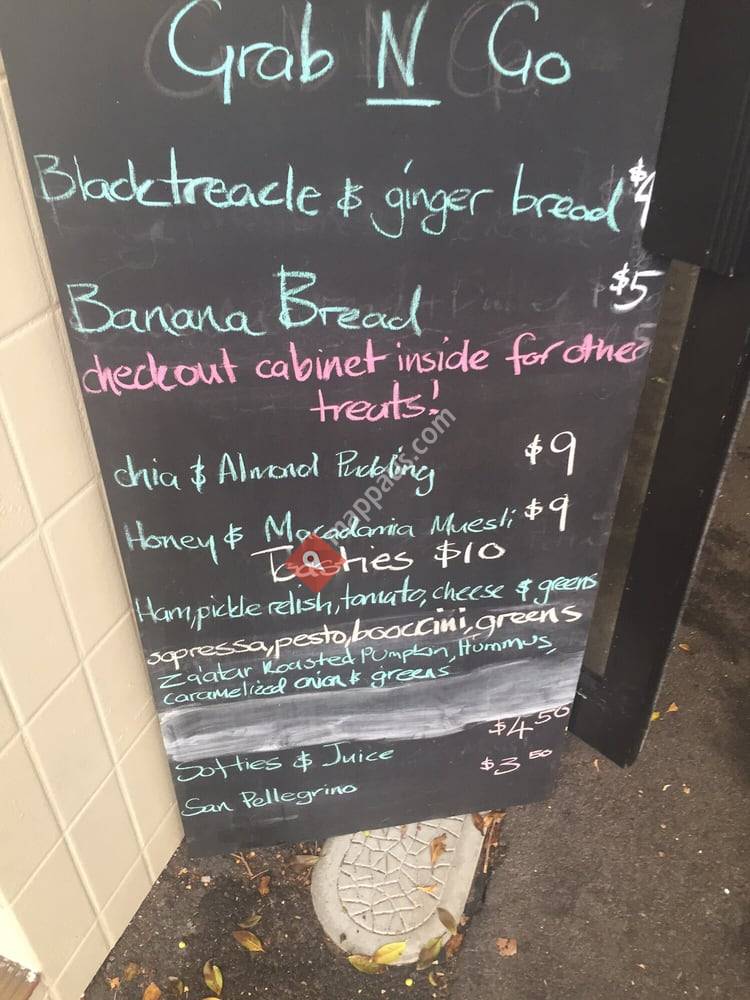 Grab N Go
Blacktreacle & ginger bread $4
Banana Bread $5
checkout cabinet inside for other
treats!
chia & Almond Pudding $9
Honey & Macadamia Muesli $9
Toasties $10
Ham, pickle relish, tomato, cheese & greens
sopressa, pesto, booccini, greens
Za'atar Roasted Pumpkin, Hummus,
caramelized onion & greens
Softies & Juice $4 50
San Pellegrino $3 50
9 mappaus.com